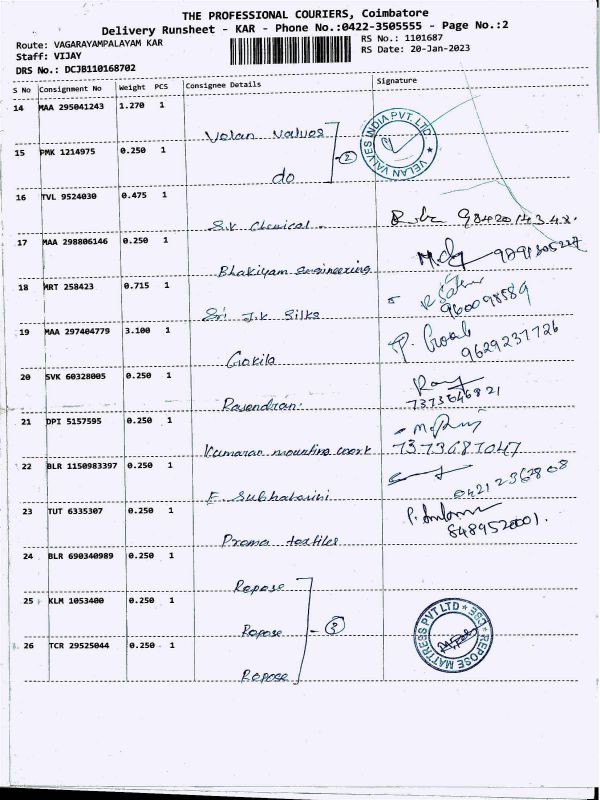 THE PROFESSIONAL COURIERS, Coimbatore
Delivery Runsheet - KAR - Phone No.:0422-3505555 - Page No.:2
Route: VAGARAYAMPALAYAM KAR
RS No.: 1101687
Staff: VIJAY
RS Date: 20-Jan-2023
DRS No.: DCJB110168702
S No Consignment No Weight PCS Consignee Details Signature
14 MAA 295041243 1.270 1
Velan Valves
VELAN VALVES INDIA PVT LTD
15 PMK 1214975 0.250 1
do
2
16 TVL 9524030 0.475 1
S.K Chemical.
17 MAA 298806146 0.250 1
Bhakiyam Engineering
18 MRT 258423 0.715 1
Sri J.K Silks
960098589
19 MAA 297404779 3.100 1
Gokila
9629237726
20 SVK 60328005 0.250 1
Rajendran.
7373646821
21 DPI 5157595 0.250 1
Kumaran mounting work 7373687047
22 BLR 1150983397 0.250 1
E Subhabarini
0421 2362808
23 TUT 6335307 0.250 1
Prema textiles
8489520001.
24 BLR 690340989 0.250 1
Repose
25 KLM 1053400 0.250 1
Repose
3
REPOSE MATTRESS PVT LTD CBE
26 TCR 29525044 0.250 1
Repose